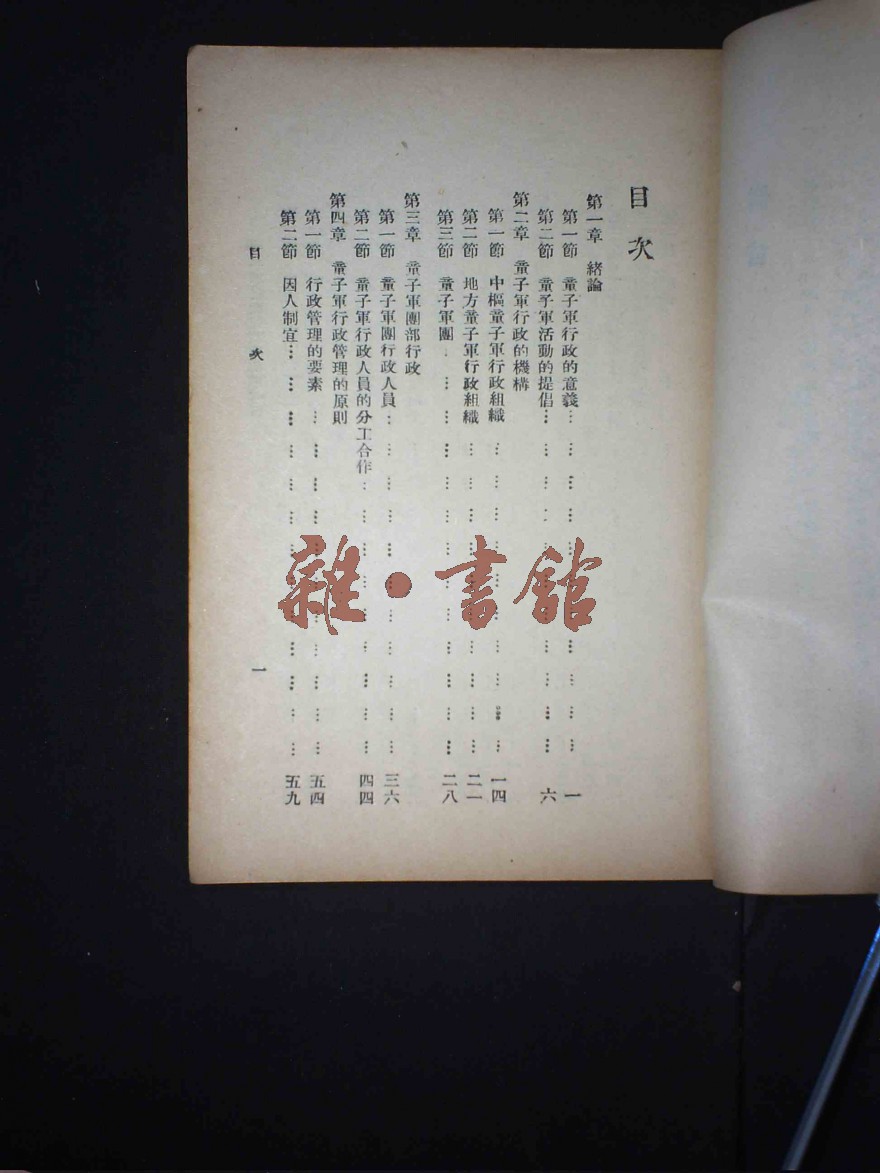 目次
第一章 緒論
第一節 童子軍行政的意義 … … … … … … … … … … 一
第二節 童子軍活動的提倡 … … … … … … … … … … 六
第二章 童子軍行政的機構
第一節 中樞童子軍行政組織 … … … … … … … … … 一四
第二節 地方童子軍行政組織 … … … … … … … … … … 二一
第三節 童子軍團 … … … … … … … … … … … … 二八
第三章 童子軍團部行政
第一節 童子軍團行政人員 … … … … … … … … … … 三六
第二節 童子軍行政人員的分工合作 … … … … … … … … 四四
第四章 童子軍行政管理的原則
第一節 行政管理的要素 … … … … … … … … … … … 五四
第二節 因人制宜 … … … … … … … … … … … … 五九
目次 一
雜•書館